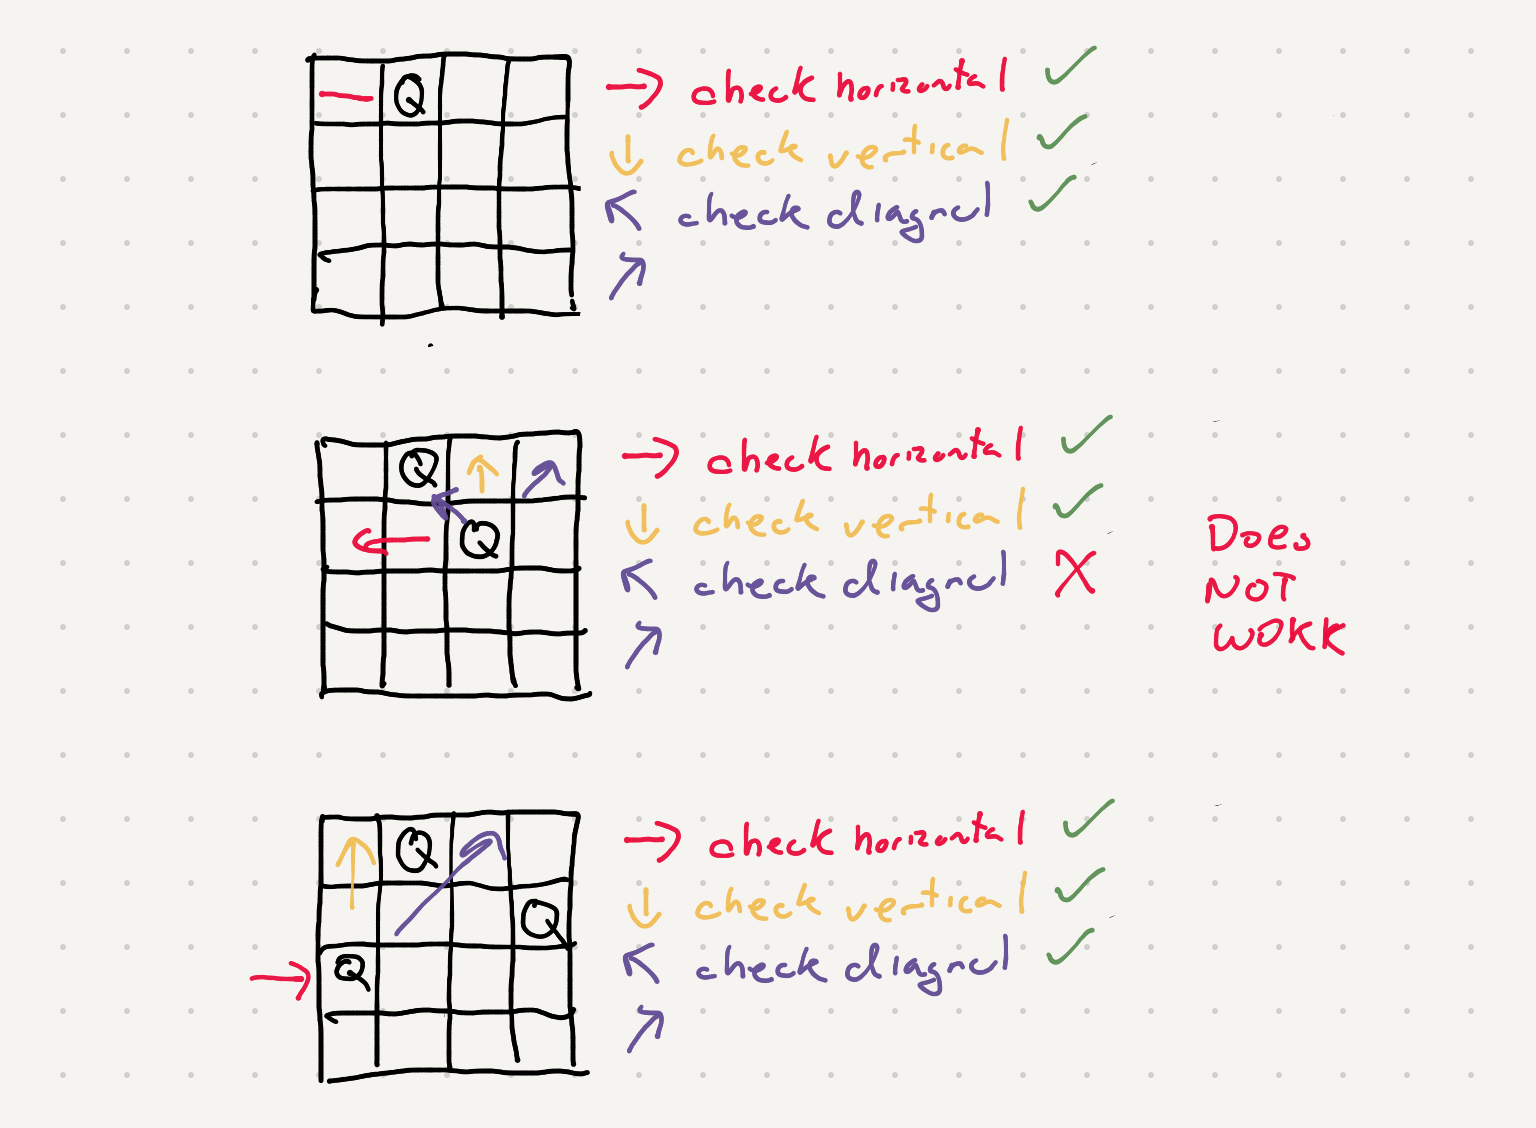 Q
check horizontal
check vertical
check diagnol
Q
Q
check horizontal
check vertical
check diagnol
Does
NOT
WORK
Q
Q
Q
check horizontal
check vertical
check diagnol